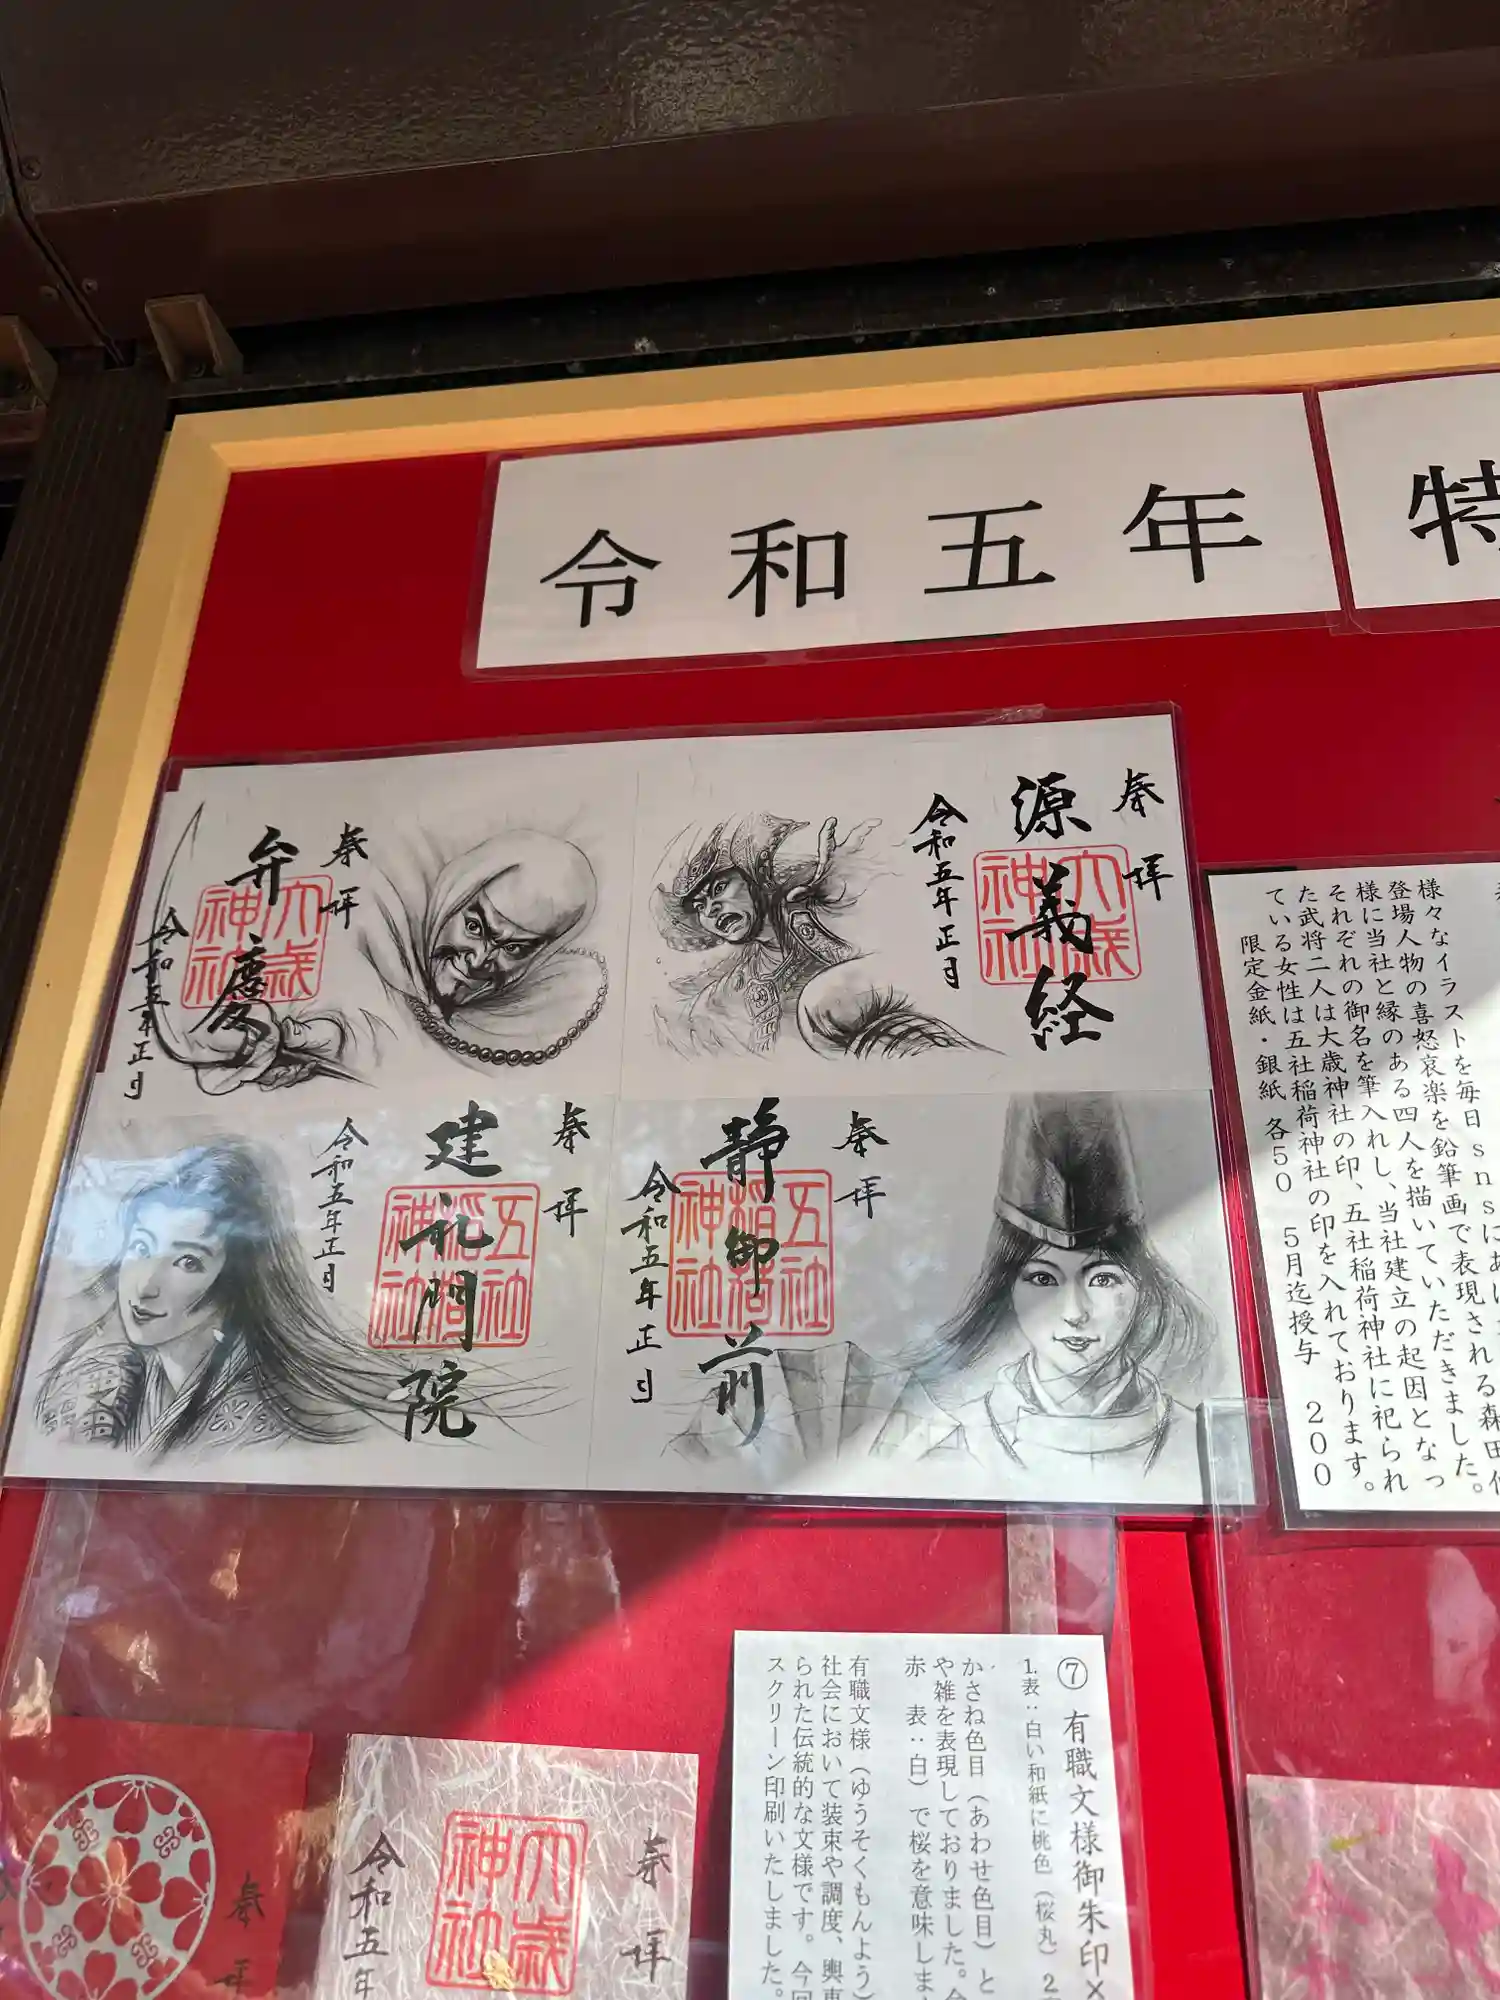 令和五年
特
奉拝
源義経
大歳神社
令和五年正月
奉拝
弁慶
大歳神社
令和五年正月
奉拝
静御前
五社稲荷神社
令和五年正月
奉拝
建礼門院
五社稲荷神社
令和五年正月
様々なイラストを毎日snsにあ
登場人物の喜怒哀楽を鉛筆画で表現される森田
様に当社と縁のある四人を描いていただきました。
それぞれの御名を筆入れし、当社建立の起因となっ
た武将二人は大歳神社の印、五社稲荷神社に祀られ
ている女性は五社稲荷神社の印を入れております。
限定金紙・銀紙 各50 5月迄授与 200
⑦ 有職文様御朱印×
1.表:白い和紙に桃色(桜丸) 2
かさね色目(あわせ色目)と
や雑を表現しておりました。
赤 表:白)で桜を意味しま
有職文様(ゆうそくもんよう)
社会において装束や調度、輿車
られた伝統的な文様です。今回
スクリーン印刷いたしました。
奉拝
大歳神社
令和五年
奉拝